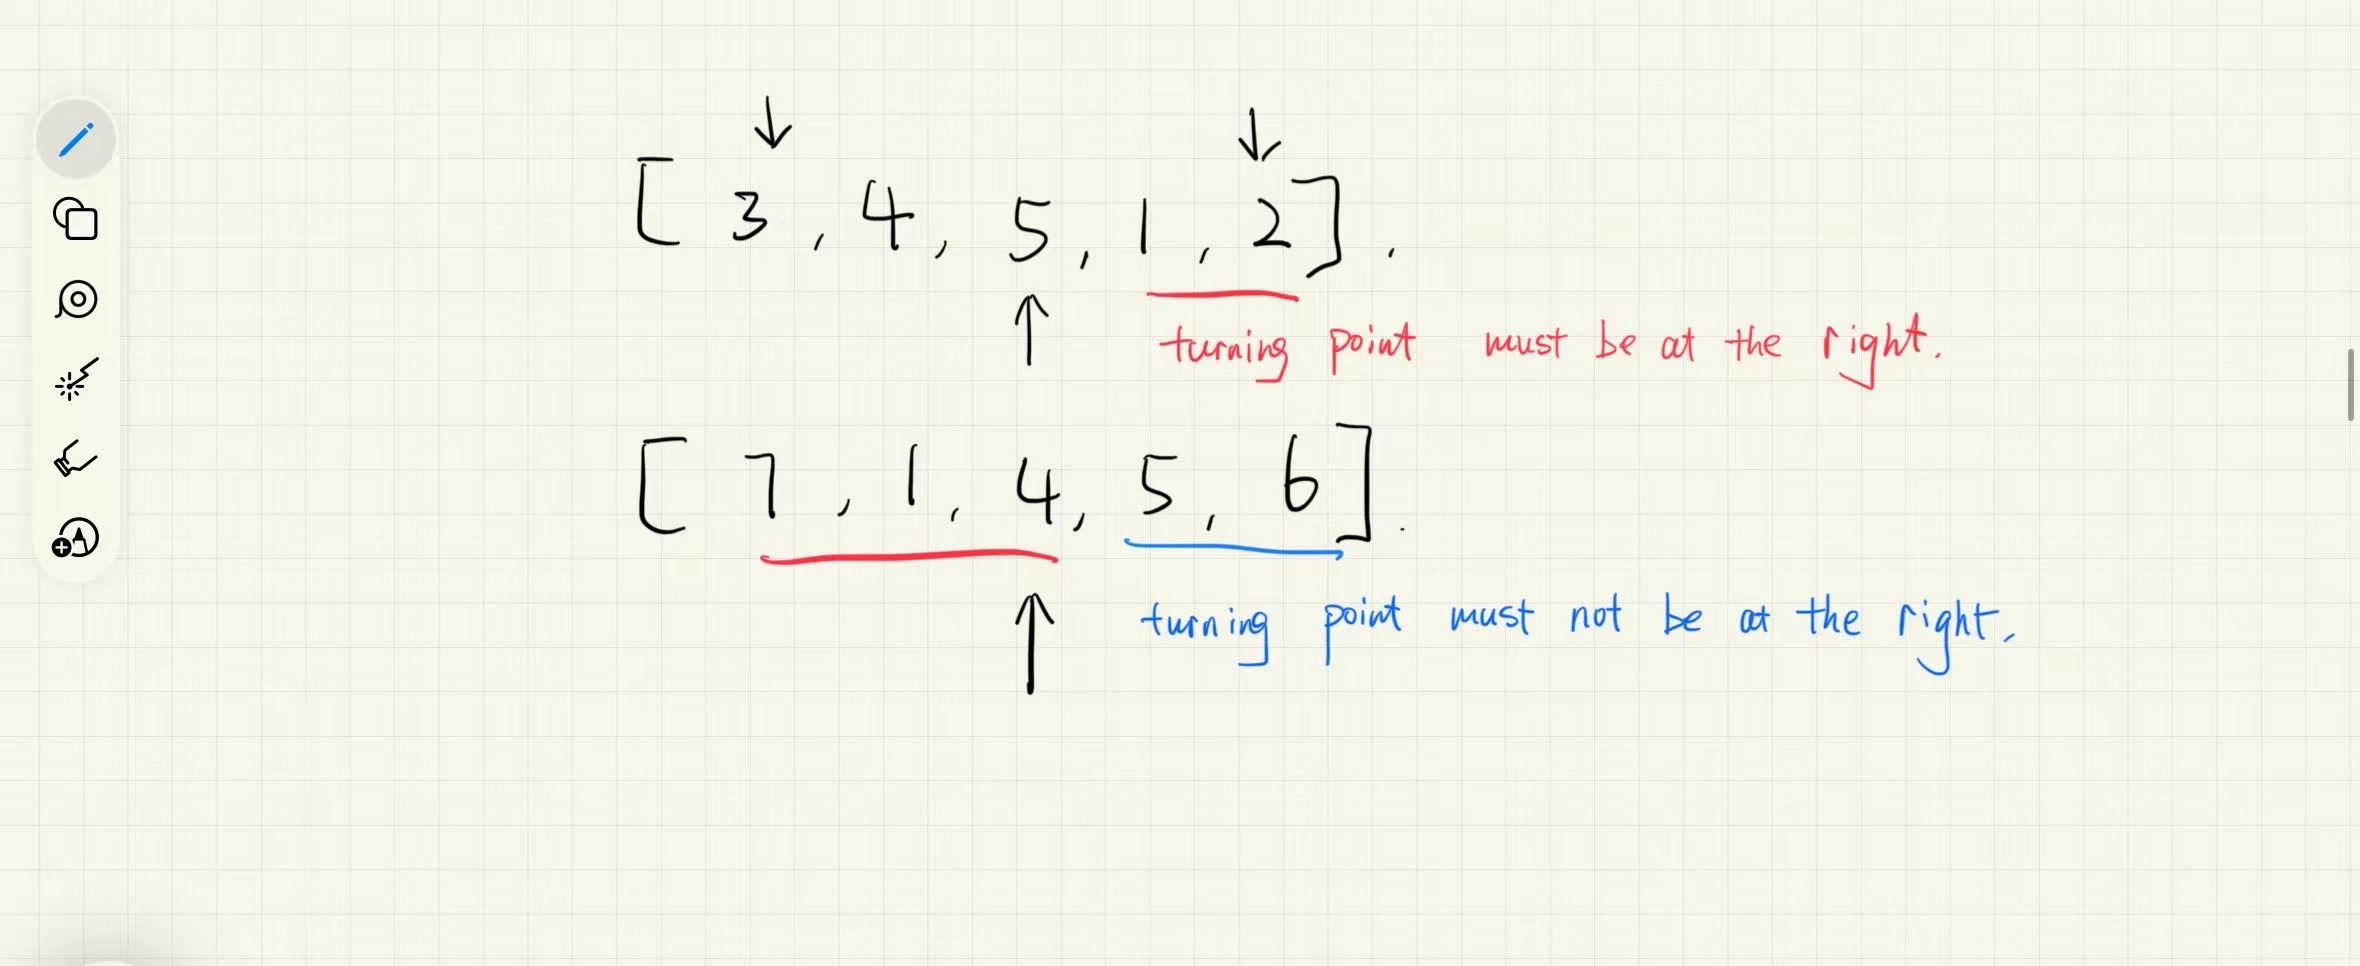 [ 3 , 4 , 5 , 1 , 2 ] .
turning point must be at the right.
[ 7 , 1 , 4 , 5 , 6 ] .
turning point must not be at the right.